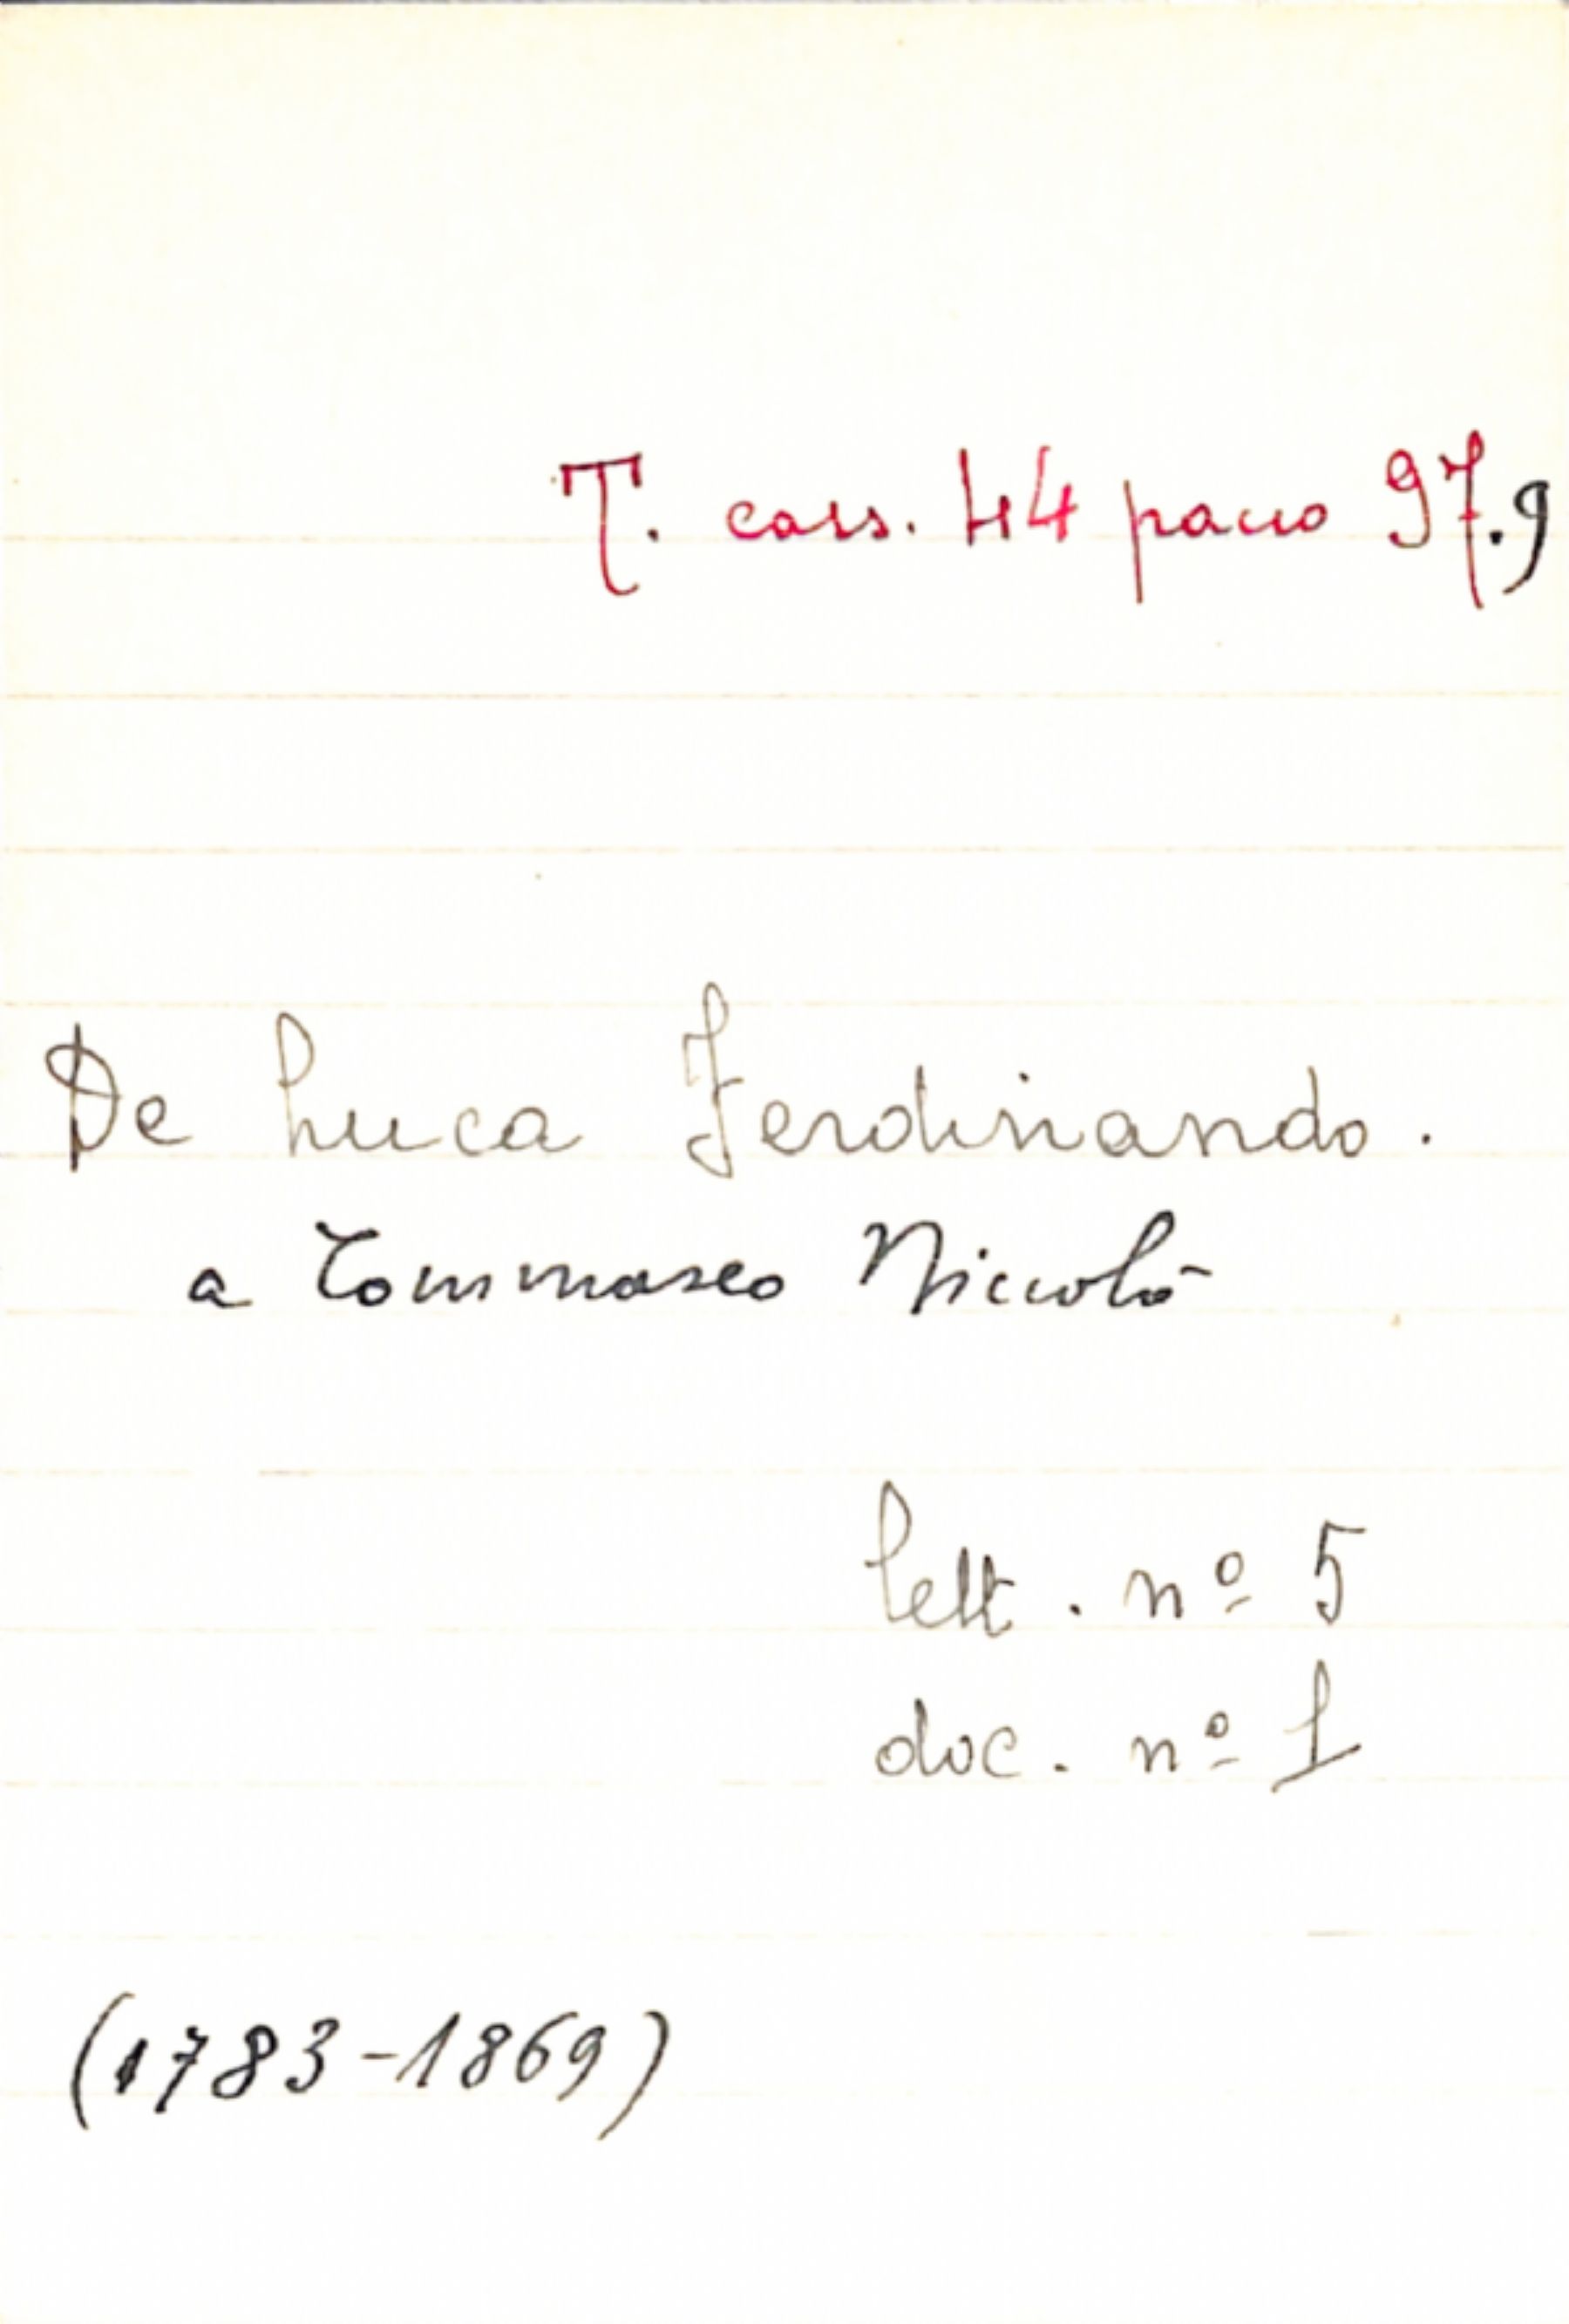 T. cass. 44 pacco 97.9
De Luca Ferdinando.
a Tommaseo Niccolò
lett. nº 5
doc. nº 1
(1783-1869)